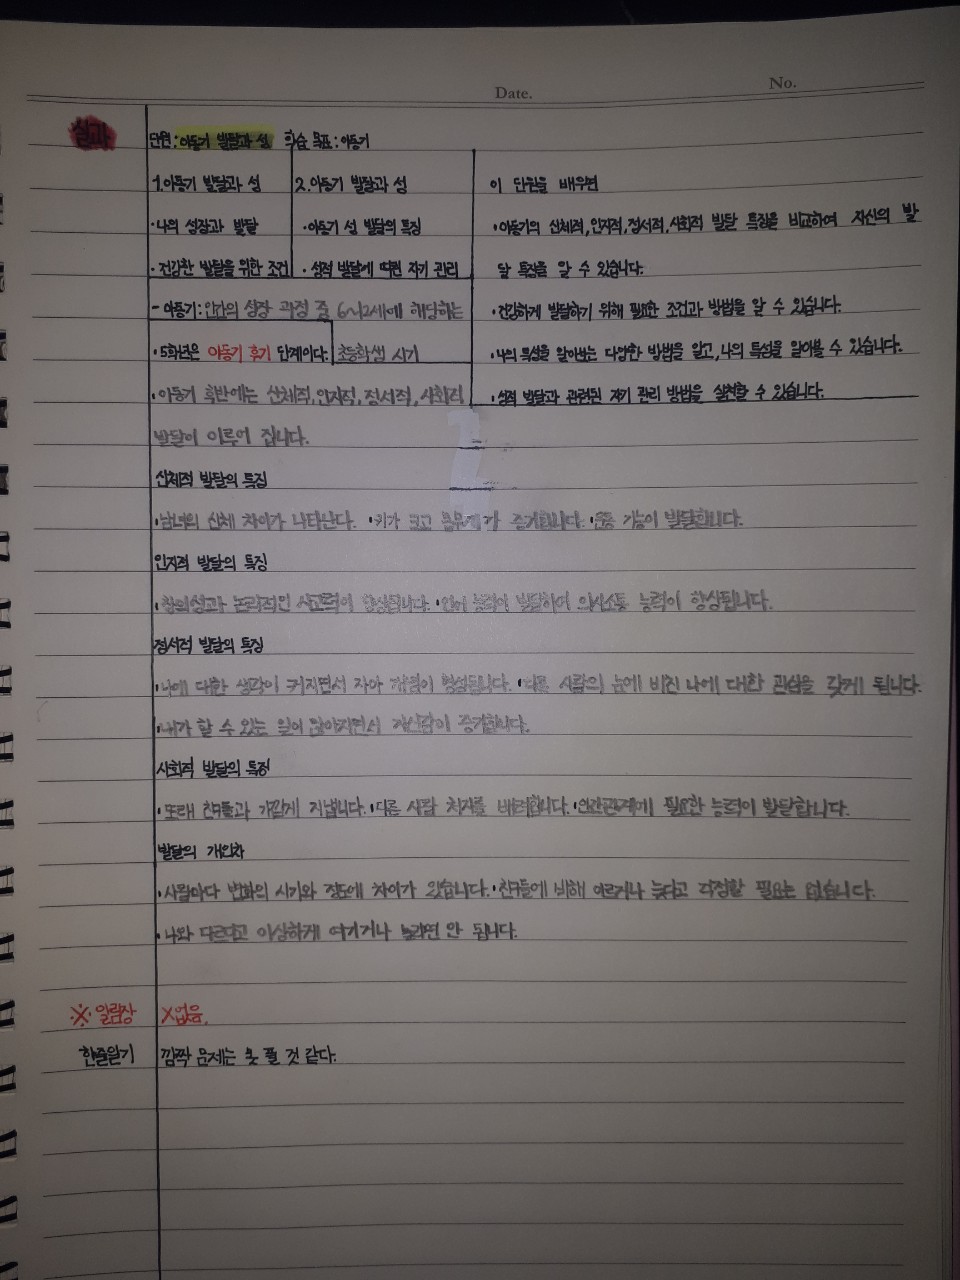 Date.
No.
실과
단원: 아동기 발달과 성 학습 목표: 아동기
1.아동기 발달과 성
·나의 성장과 발달
·건강한 발달을 위한 조건
2.아동기 발달과 성
·아동기 성 발달의 특징
·성적 발달에 따른 자기 관리
이 단원을 배우면
·아동기의 신체적,인지적,정서적,사회적 발달 특징을 비교하여 자신의 발
달 특징을 알 수 있습니다.
·건강하게 발달하기 위해 필요한 조건과 방법을 알 수 있습니다.
·나의 특성을 알아보는 다양한 방법을 알고,나의 특성을 알아볼 수 있습니다.
·성적 발달과 관련된 자기 관리 방법을 실천할 수 있습니다.
- 아동기: 인간의 성장 과정 중 6~12세에 해당하는
초등학생 시기
·5학년은 아동기 후기 단계이다.
·아동기 후반에는 신체적,인지적,정서적,사회적
발달이 이루어 집니다.
신체적 발달의 특징
·남녀의 신체 차이가 나타난다. ·키가 크고 몸무게가 증가합니다. ·운동 기능이 발달합니다.
인지적 발달의 특징
·창의성과 논리적인 사고력이 향상됩니다. ·언어 능력이 발달하여 의사소통 능력이 향상됩니다.
정서적 발달의 특징
·나에 대한 생각이 커지면서 자아 개념이 형성됩니다. ·다른 사람의 눈에 비친 나에 대한 관심을 갖게 됩니다.
·내가 할 수 있는 일이 많아지면서 자신감이 증가합니다.
사회적 발달의 특징
·또래 친구들과 가깝게 지냅니다. ·다른 사람 처지를 배려합니다. ·인간관계에 필요한 능력이 발달합니다.
발달의 개인차
·사람마다 변화의 시기와 정도에 차이가 있습니다. ·친구들에 비해 이르거나 늦다고 걱정할 필요는 없습니다.
·나와 다르다고 이상하게 여기거나 놀리면 안 됩니다.
※ 알림장 X없음.
한줄일기 깜짝 문제는 못 풀 것 같다.